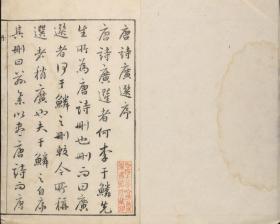 唐詩廣選序
唐詩廣選者何李于鱗先
生所為唐詩刪也刪而曰廣
選者何于鱗之刪較今所稱
選者稍廣也夫于鱗之自序
其刪曰茲集以盡唐詩而唐